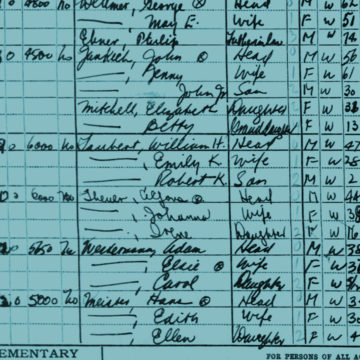 4800 No Wellmer, George ⓧ Head M W 62
——, May E. Wife F W 51
Ebner, Philip Father-in-law M W 74
0 4500 No Junkich, John ⓧ Head M W 56
——, Penny Wife F W 61
——, John Jr Son M W 30
Mitchell, Elizabeth Daughter F W 38
——, Betty Granddaughter F W 13
0 6000 No Taubert, William H. Head M W 47
——, Emily K. Wife F W 28
——, Robert K. Son M W 2
0 6000 No Theuer, ⓧ Head M W 48
——, Johanna Wife F W 38
——, Irene Daughter F W 16
0 5750 No Weidermann, Adam Head M W 38
——, Elsie ⓧ Wife F W
——, Carol Daughter F W
0 5000 No Meister, Hans ⓧ Head M W
——, Edith Wife F W 30
——, Ellen Daughter F W 4
EMENTARY FOR PERSONS OF ALL A